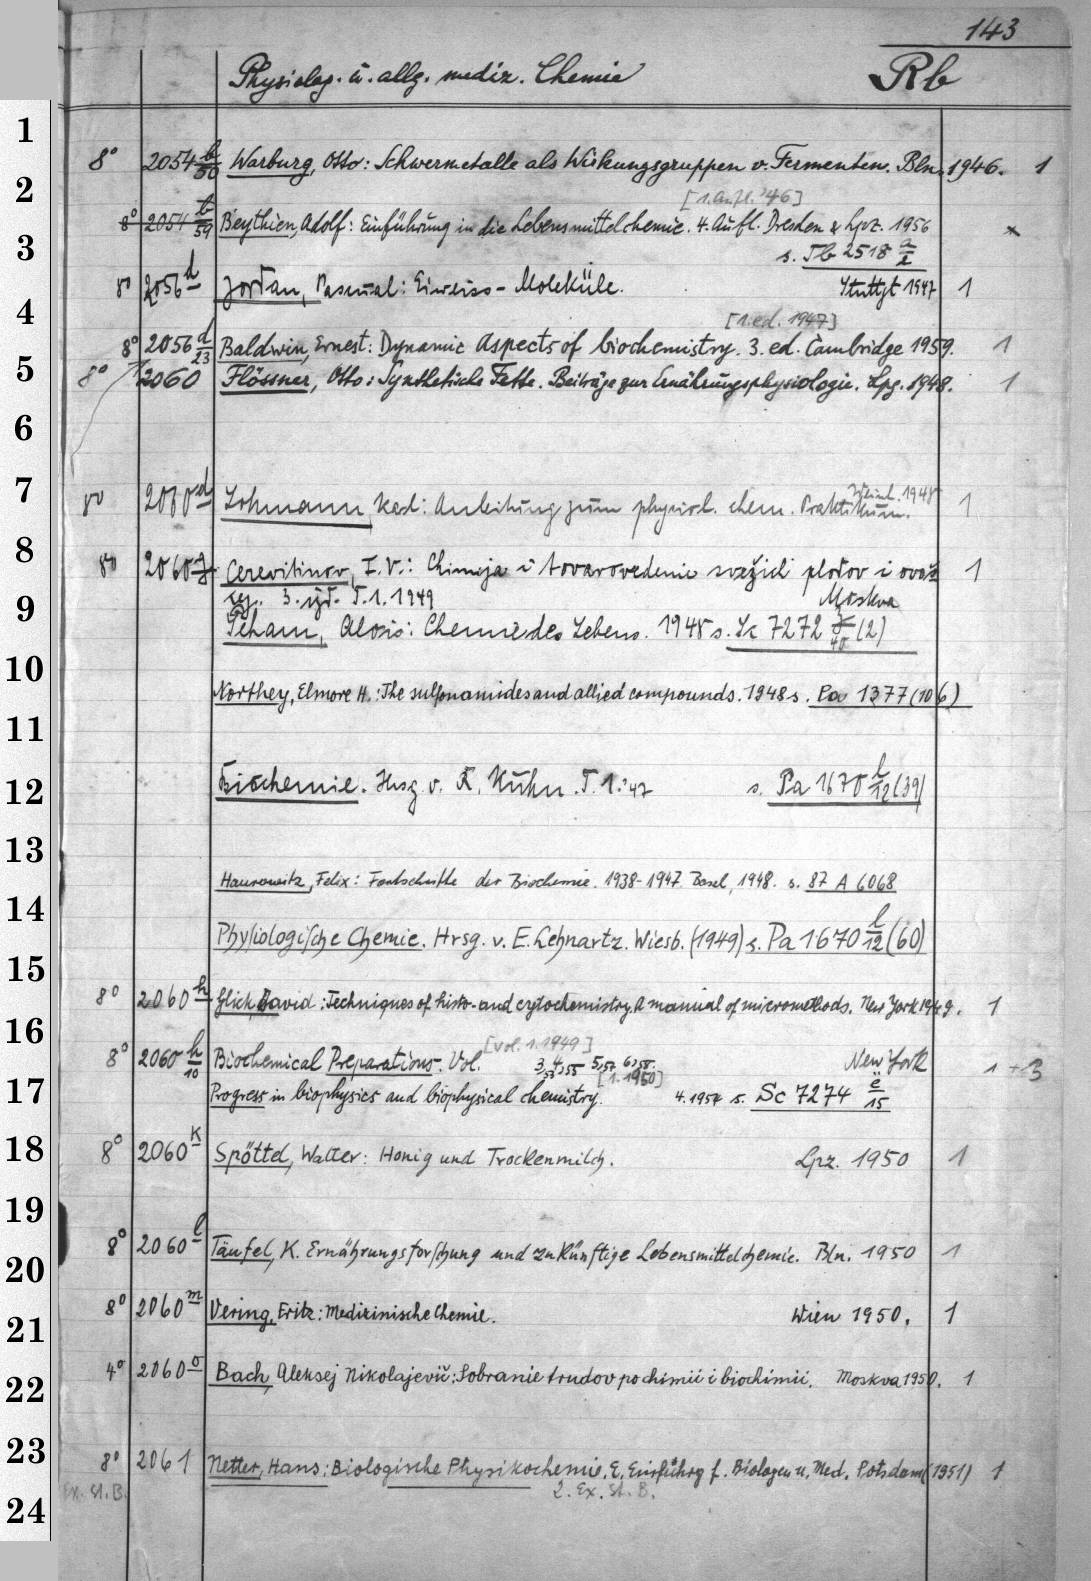 143
Physiolog. u. allg. mediz. Chemie Rb
1
8° 2054 b/50 Warburg, Otto: Schwermetalle als Wirkungsgruppen v. Fermenten. Bln. 1946. 1
2
[1. Aufl. '46]
8° 2054 b/59 Beythien, Adolf: Einführung in die Lebensmittelchemie. 4. Aufl. Dresden & Lpz. 1956
3
s. Tb 2518
8° 2056 d Jordan, Pascual: Eiweiss-Moleküle. Stuttgt 1947 1
4
[1. ed. 1947]
8° 2056 d/23 Baldwin, Ernest: Dynamic Aspects of biochemistry. 3. ed. Cambridge 1959. 1
5
8° 2060 Flössner, Otto: Synthetische Fette. Beiträge zur Ernährungsphysiologie. Lpg. 1948. 1
6
7
8° 2060 d Lohmann, Karl: Anleitung zum physiol. chem. Praktikum. 1948 1
8
8° 2060 Cerevitinov, F. V.: Chimija i tovarovedenie svežich plodov i ovoš
9
cej. 3. izd. T. 1. 1949 Moskva 1
Alois: Chemie des Lebens. 1948 s. Sc 7272 /40 (2)
10
Northey, Elmore H.: The sulfonamides and allied compounds. 1948 s. Pa 1377 (106)
11
12
Biochemie. Hrsg. v. R. Kuhn. T. 1: '47 s. Pa 1670 l/12 (39)
13
Haurowitz, Felix: Fortschritte der Biochemie. 1938-1947. Basel, 1948. s. 87 A 6068
14
Physiologische Chemie. Hrsg. v. E. Lehnartz. Wiesb. (1949) s. Pa 1670 l/12 (60)
15
8° 2060 h Glick, David: Techniques of histo- and cytochemistry. A manual of micromethods. New York 1949. 1
16
[Vol. 1. 1949]
8° 2060 h/10 Biochemical Preparations. Vol. 3,53 4,55 5,57 6,58. New York 1 + 3
[1. 1950]
17
Progress in biophysics and biophysical chemistry. 4. 1954 s. Sc 7274 ë/15
18
8° 2060 K Spöttel, Walter: Honig und Trockenmilch. Lpz. 1950 1
19
8° 2060 l Täufel, K. Ernährungsforschung und zukünftige Lebensmittelchemie. Bln. 1950 1
20
8° 2060 m Vering, Fritz: Medizinische Chemie. Wien 1950. 1
21
4° 2060 o Bach, Aleksej Nikolajevič: Sobranie trudov po chimii i biochimii. Moskva 1950. 1
22
23
8° 2061 Netter, Hans: Biologische Physikochemie. E. Einführg f. Biologen u. Med. Potsdam (1951) 1
Ex. St. B. 2. Ex. St. B.
24